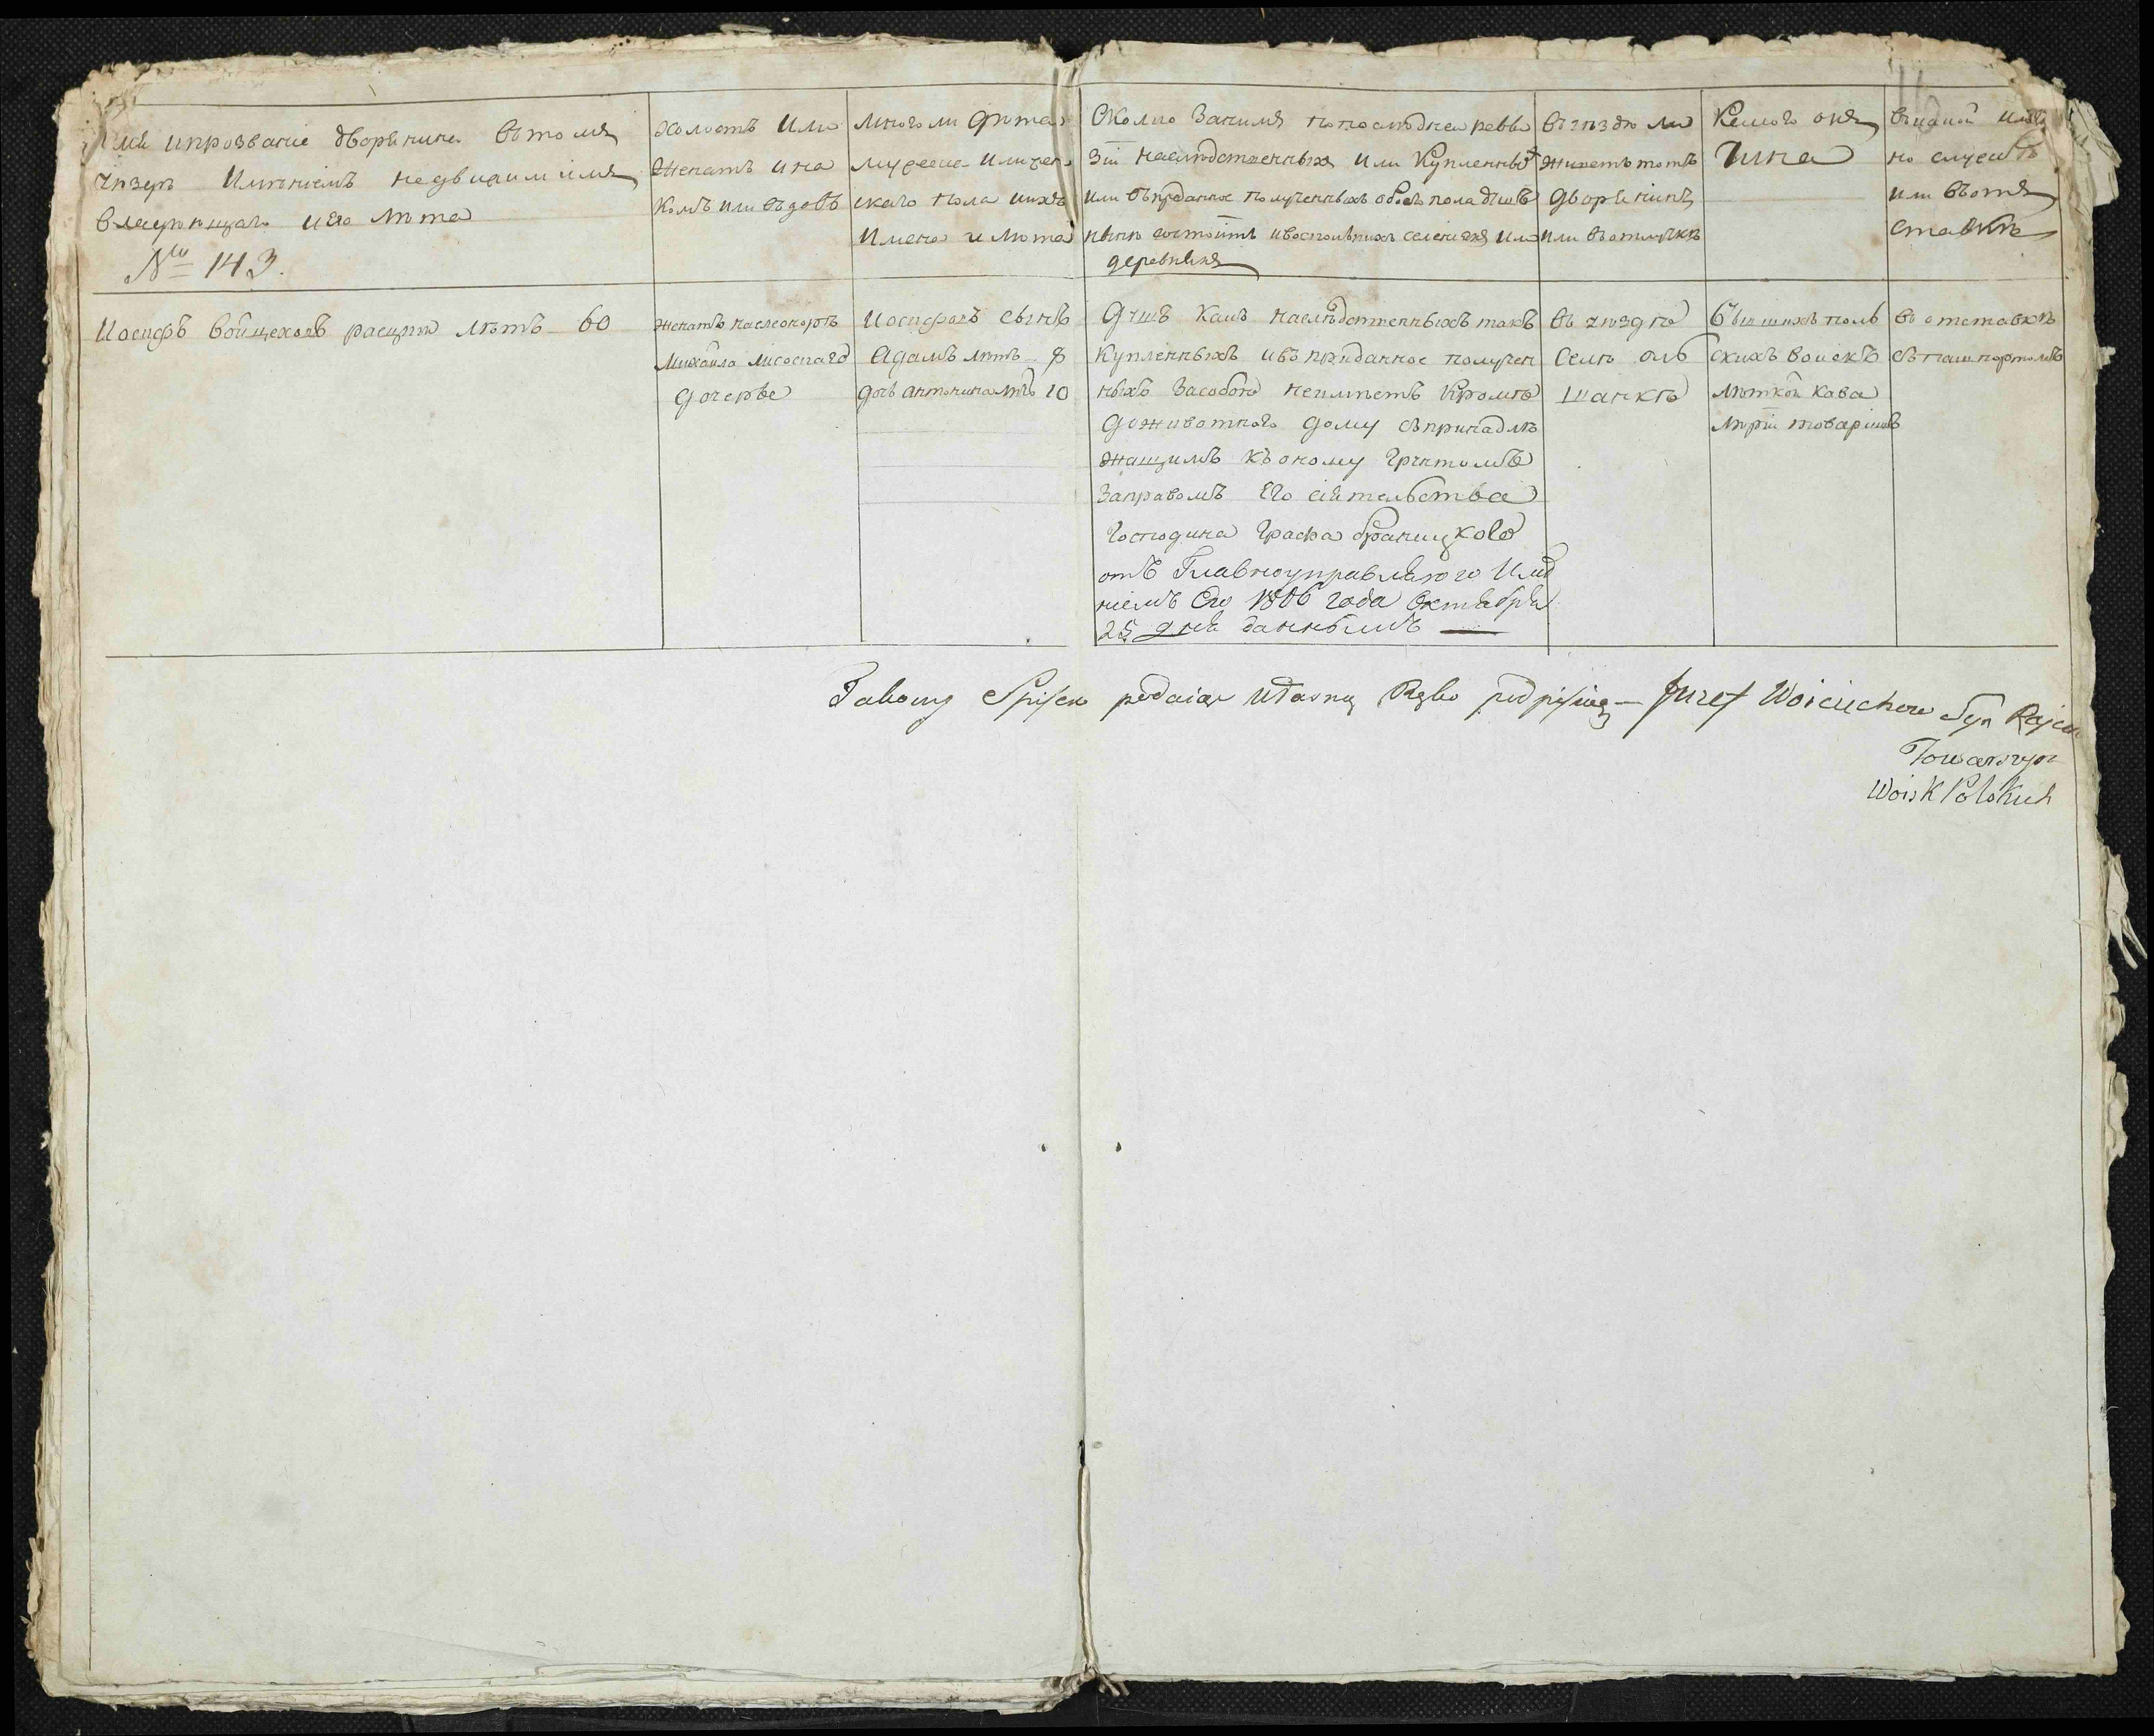 Имя ипрозваніе дворянина втомъ
уездѣ Имѣніемъ недвижимымъ
владѣющаго иего лѣта
№ 143.
холостъ или
Женатъ ина
комъ или вдовъ
Много ли дѣтей
мужеска илижен
скаго пола ихъ
Имена и лѣта
Сколко Занимъ попослѣдней реви
зіи наслѣдственныхъ или Купленныхъ
или въприданое полученныхъ обоего пола душъ
нынѣ состоитъ ивъ селеніяхъ или
деревняхъ
въуездѣ ли
живетъ тотъ
дворянинъ
или въотлучкѣ
Какого онъ
Чина
но службѣ
или вът
ставкѣ
Иосифъ Войцеховъ расцкій лѣтъ 60
женатъ на
Михайла Лисоскаго
дочерѣ
Иосифовъ сынъ
Адамъ лѣтъ 8
дочь антонина лѣтъ 10
Душъ Какъ наслѣдственныхъ такъ
Купленныхъ ивъ приданое получен
ныхъ Засобою неимѣетъ Кромѣ
доживотнаго дому съпринадлѣ
жащимъ къоному грунтомъ
Заправомъ Его сіятельства
Господина Графа браницкого
отъ Главноуправляюго Имѣ
ніемъ Его 1806 года Октября
25 дня даннымъ
въ уездѣ
Селѣ оль
шанкѣ
бывшихъ поль
скихъ воискъ
лѣткой кава
лѣріи товарищъ
въ отставкѣ
съпашпортомъ
Takowy Spisek podaiąc własną Ręko podpisuię — Juzef Woiciechow Syn
Towarzysz
Woisk Polskich